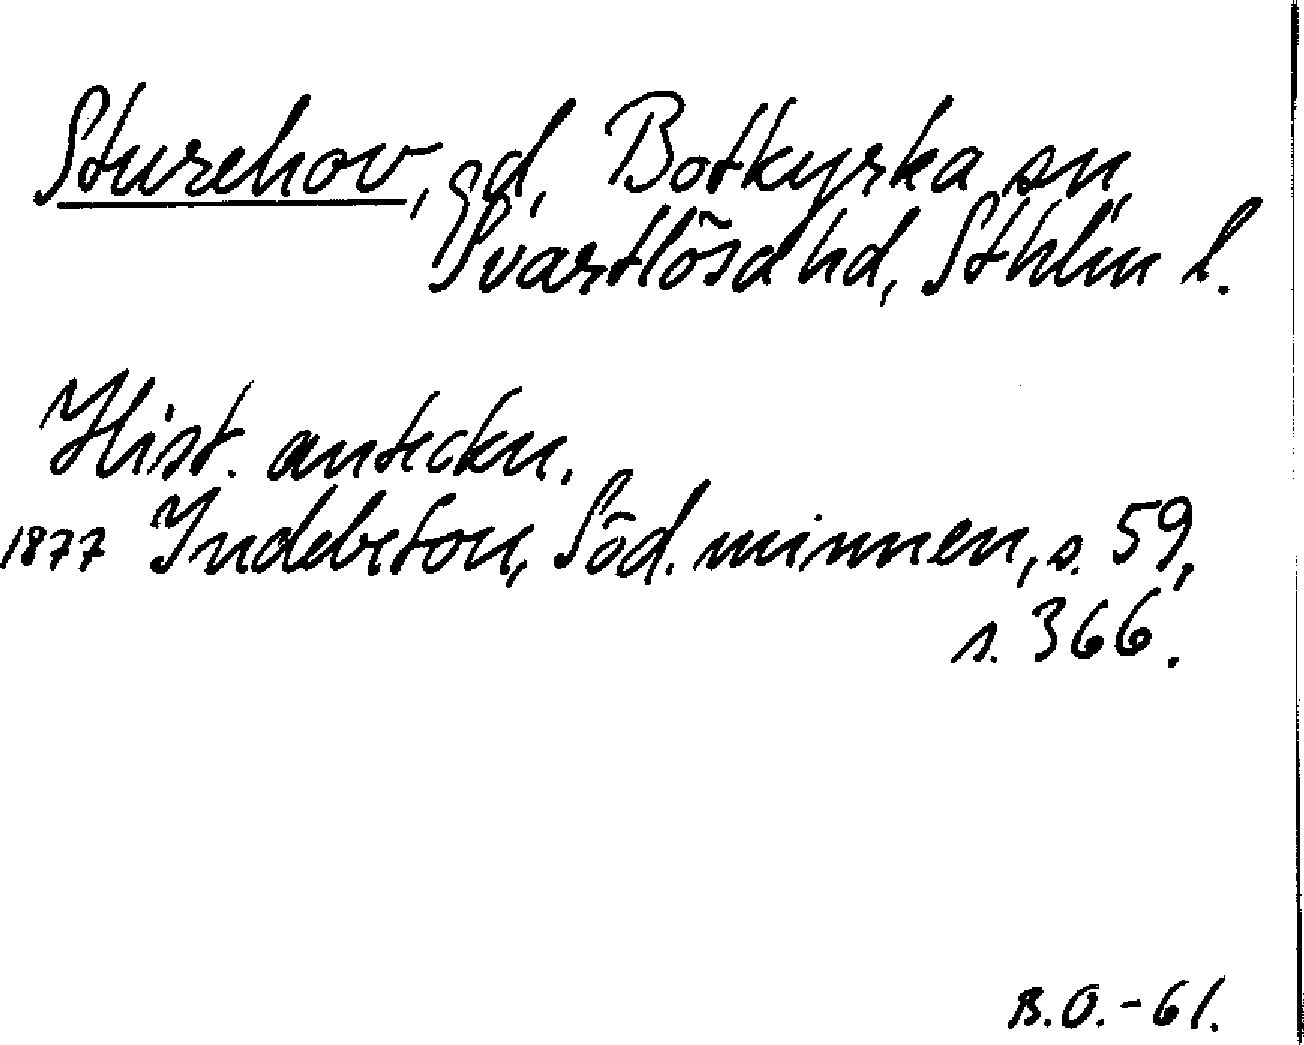 Sturehov, gd, Botkyrka sn,
Svartlösa hd, Sthlm l.
Hist. anteckn.
1877 Indebetou, Söd. minnen, s. 59,
s. 366.
B.O. - 61.